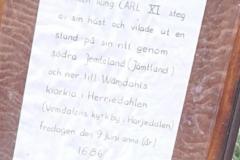 den kung CARL XI steg
av sin häst och vilade ut en
stund på sin ritt genom
södra Jemtoland (Jämtland)
och ner till Wåndahls
kiorkia i Herriedahlen
(Vemdalens kyrkby i Härjedalen)
fredagen den 9 juni anno (år)
1686